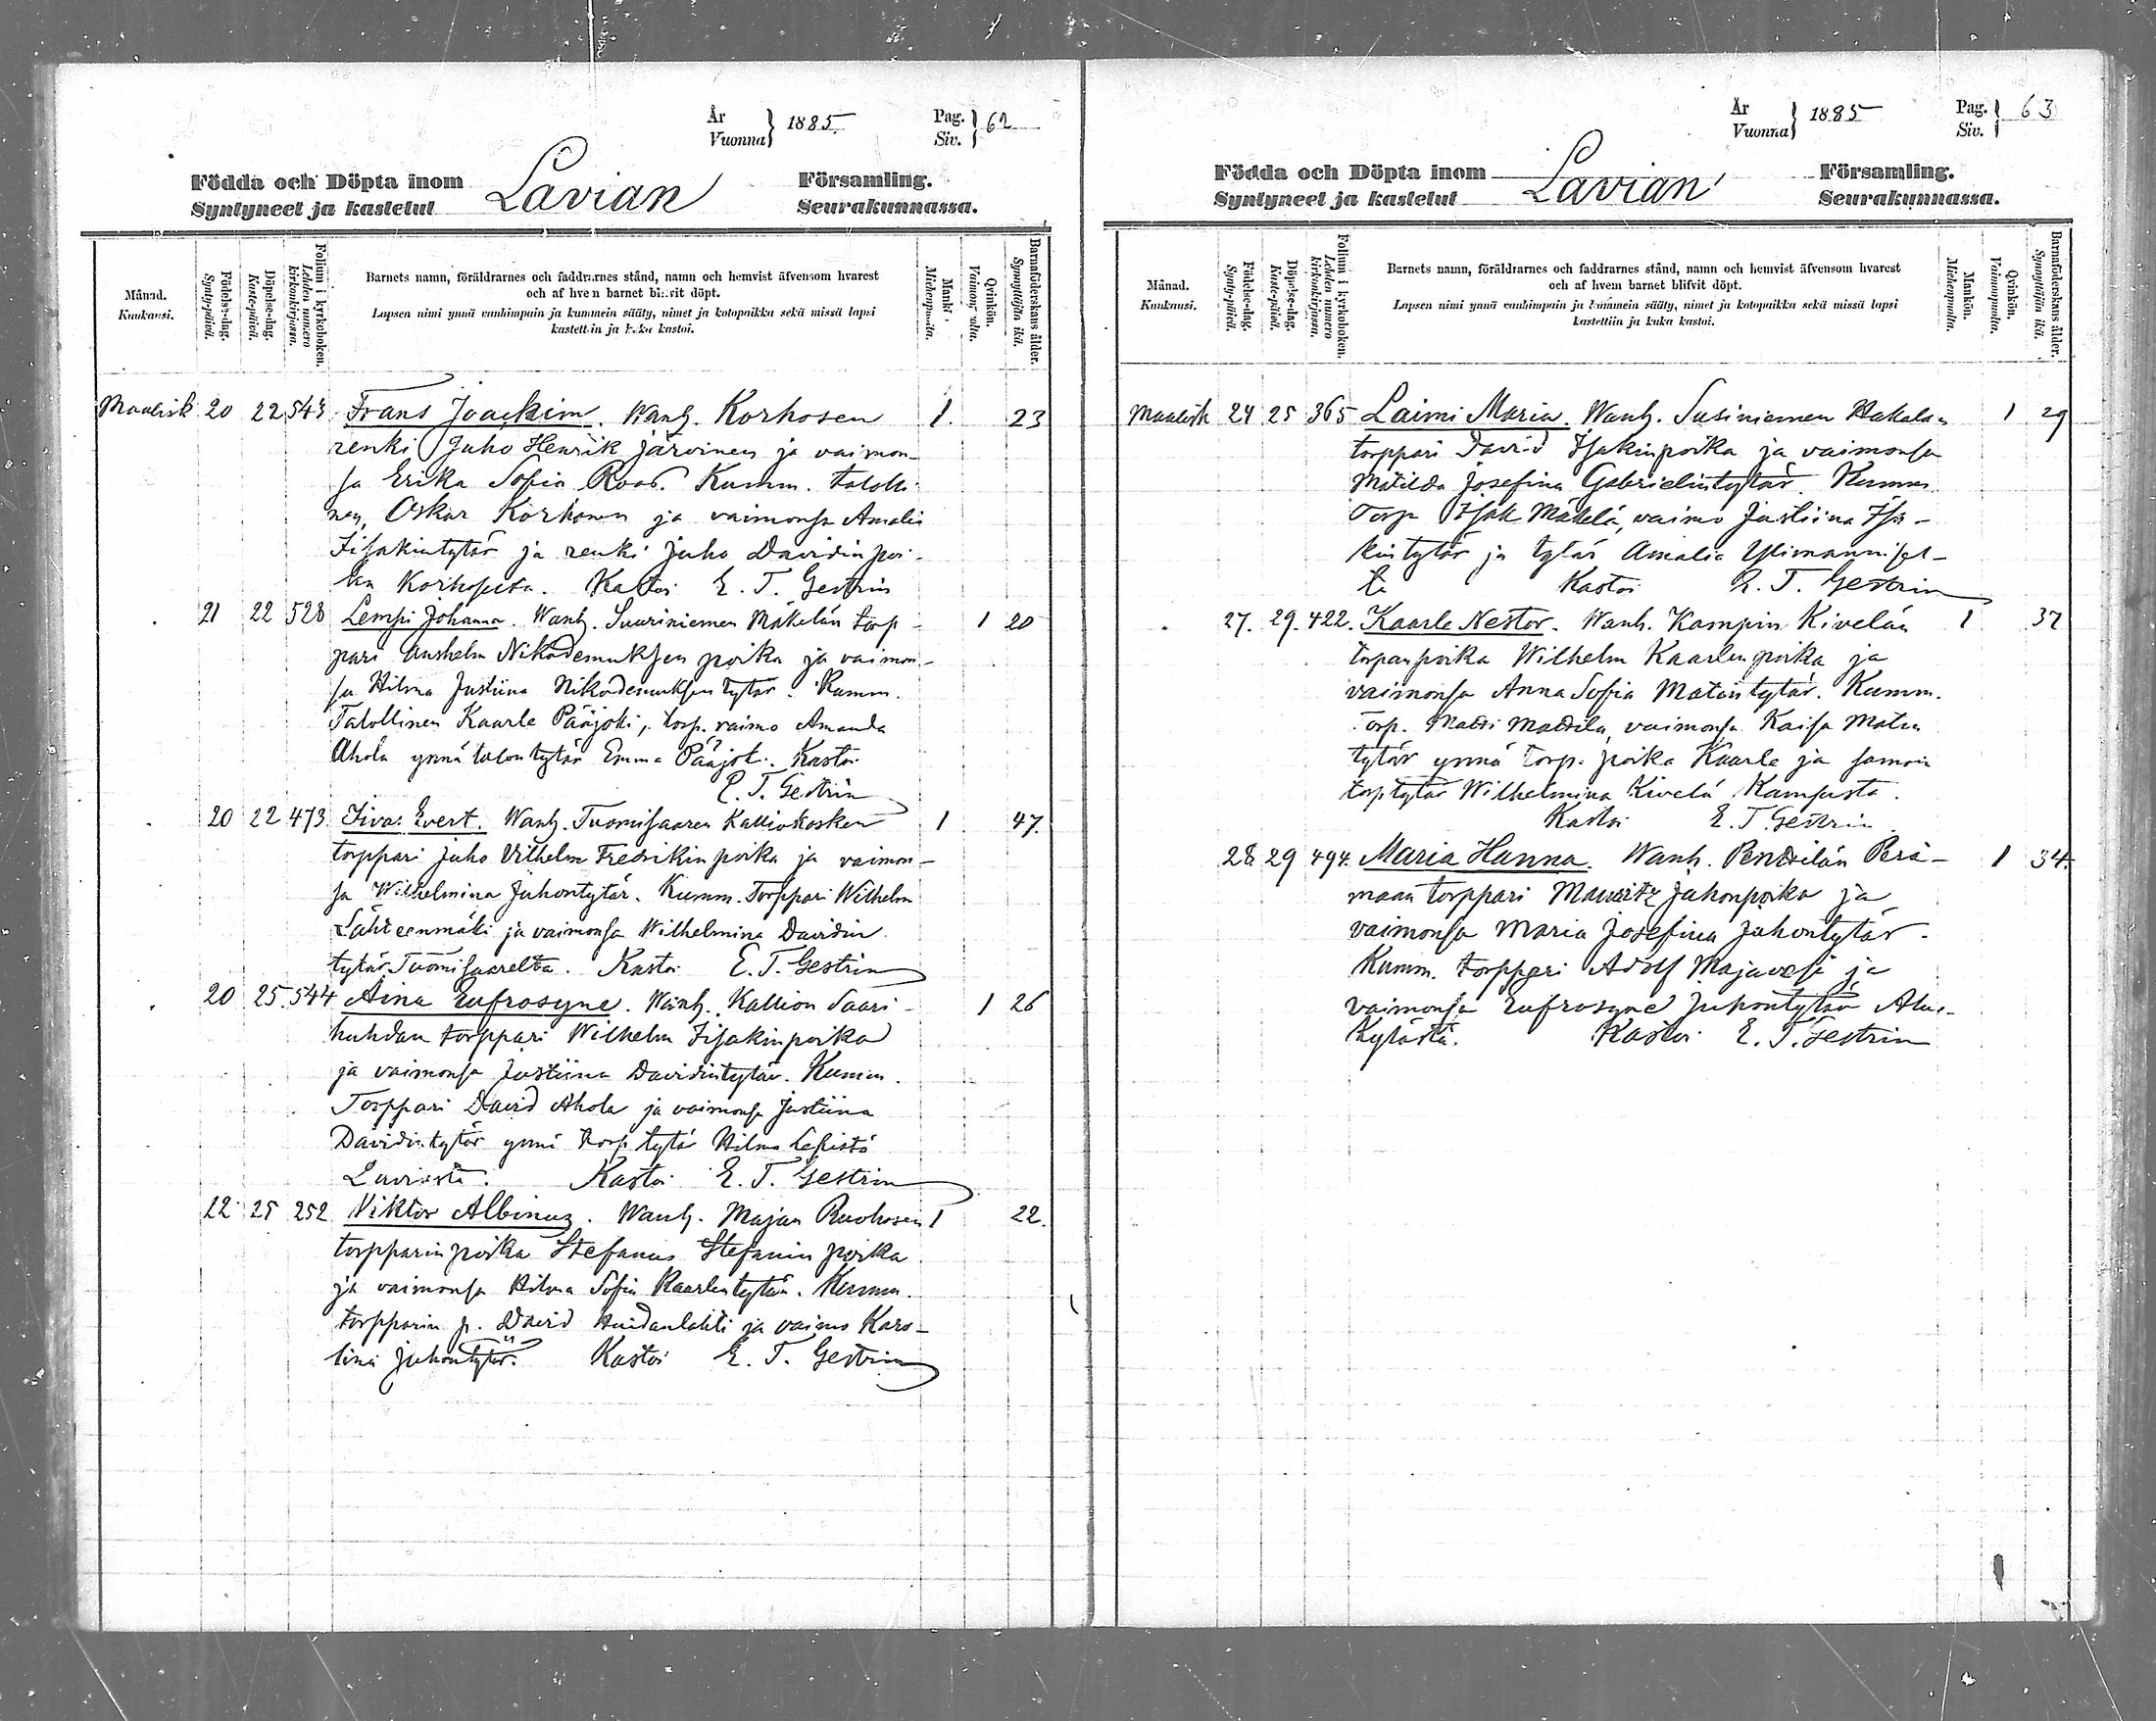 År
Vuonna } 1885
Pag.
Siv. } 62
Födda och Döpta inom Lavian Församling.
Syntyneet ja kastetut Seurakunnassa.
Månad.
Kuukausi.
Födelse-dag.
Synty-päivä.
Döpelse-dag.
Kaste-päivä.
Folium i kyrkoboken.
Lehden numero kirkonkirjassa.
Barnets namn, föräldrarnes och faddrarnes stånd, namn och hemvist äfvensom hvarest
och af hvem barnet blifvit döpt.
Lapsen nimi ynnä vanhimpain ja kummein sääty, nimet ja kotopaikka sekä missä lapsi
kastettiin ja kuka kastoi.
Mankö
Miehenpuolta.
Qvinkön.
Vaimonpuolta.
Barnaföderskans ålder.
Synnyttäjän ikä.
Maalisk 20 22 543 Frans Joackim. Wanh. Korhosen 1. 23
renki Juho Henrik Järvinen ja vaimon-
sa Erika Sofia Roos. Kumm. talolli-
nen Oskar Korhonen ja vaimonsa Amalia
Iisakintytär ja renki Juho Davidinpoi-
ka Korhoselta. Kastoi E. T. Gestrin
21 22 528 Lempi Johanna. Wanh. Suuriniemen Mäkelän torp- 1 20
pari Anshelm Nikodemuksen poika ja vaimon-
sa Hilma Justiina Nikodemuksentytär. Kumm.
Talollinen Kaarle Pääjoki, torp. vaimo Amanda
Ahola ynnä talontytär Emma Pääjoki. Kastoi
E. T. Gestrin
20 22 473. Iivar Evert. Wanh. Tuomisaaren Kalliokosken 1 47.
torppari Juho Vilhelm Fredrikin poika ja vaimon-
sa Wilhelmina Juhontytär. Kumm. Torppari Wilhelm
Lähteenmäki ja vaimonsa Wilhelmina Davidin
tytär Tuomisaarelta. Kastoi E. T. Gestrin
20 25. 544 Aina Eufrosyne. Wanh. Kallion Saari- 1 26
huhdan torppari Wilhelm Iisakinpoika
ja vaimonsa Justiina Davidintytär. Kumm.
Torppari David Ahola ja vaimonsa Justiina
Davidintytär ynnä torp. tytär Hilma Lepistö
Laviasta. Kastoi E. T. Gestrin
22 25 252 Viktor Albinus. Wanh. Majan Ruohosen 1 22.
torpparinpoika Stefanus Stefanin poika
ja vaimonsa Hilma Sofia Kaarlentytär. Kumm.
torpparin p. David Haidanlahti ja vaimo Karo-
lina Juhontytär. Kastoi E. T. Gestrin
År
Vuonna } 1885
Pag.
Siv. } 63
Födda och Döpta inom Lavian Församling.
Syntyneet ja kastetut Seurakunnassa.
Månad.
Kuukausi.
Födelse-dag.
Synty-päivä.
Döpelse-dag.
Kaste-päivä.
Folium i kyrkoboken.
Lehden numero kirkonkirjassa.
Barnets namn, föräldrarnes och faddrarnes stånd, namn och hemvist äfvensom hvarest
och af hvem barnet blifvit döpt.
Lapsen nimi ynnä vanhimpain ja kummein sääty, nimet ja kotopaikka sekä missä lapsi
kastettiin ja kuka kastoi.
Mankön.
Miehenpuolta.
Qvinkön.
Vaimonpuolta.
Barnaföderskans ålder.
Synnyttäjän ikä.
Maalisk 24 25 365 Laimi Maria. Wanh. Susiniemen Hakalan 1 29
torppari David Isakinpoika ja vaimonsa
Matilda Josefina Gabrielintytär. Kumm.
Torp Isak Mäkelä, vaimo Justiina Isa-
kintytär ja tytär Amalia Ylimannisel-
ta Kastoi E. T. Gestrin
27. 29. 422. Kaarle Nestor. Wanh. Kampin Kivelän 1 37
torpanpoika Wilhelm Kaarlenpoika ja
vaimonsa Anna Sofia Matintytär. Kumm.
Torp. Matti Mattila, vaimonsa Kaisa Matin
tytär ynnä torp. poika Kaarle ja saman
torp tytär Wilhelmina Kivelä Kampista.
Kastoi E. T. Gestrin
28. 29 494. Maria Hanna. Wanh. Penttilän Perä- 1 34.
maan torppari Mauritz Juhonpoika ja
vaimonsa Maria Josefina Juhontytär.
Kumm. torppari Adolf Majavesi ja
vaimonsa Eufrosyne Juhontytär Alus-
kylästä. Kastoi E. T. Gestrin